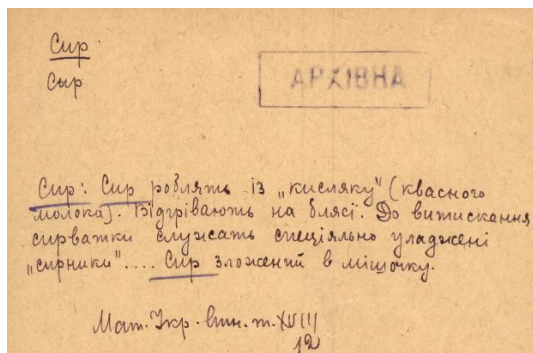 Сир
Сыр
АРХІВНА
Сир: Сир роблять із „кисляку" (квасного
молока). Відгрівають на блясі. До витискання
сирватки служать спеціяльно уладжені
„сирники".... Сир зложений в мішочку.
Мат. Укр. етн. т. XVIII
12